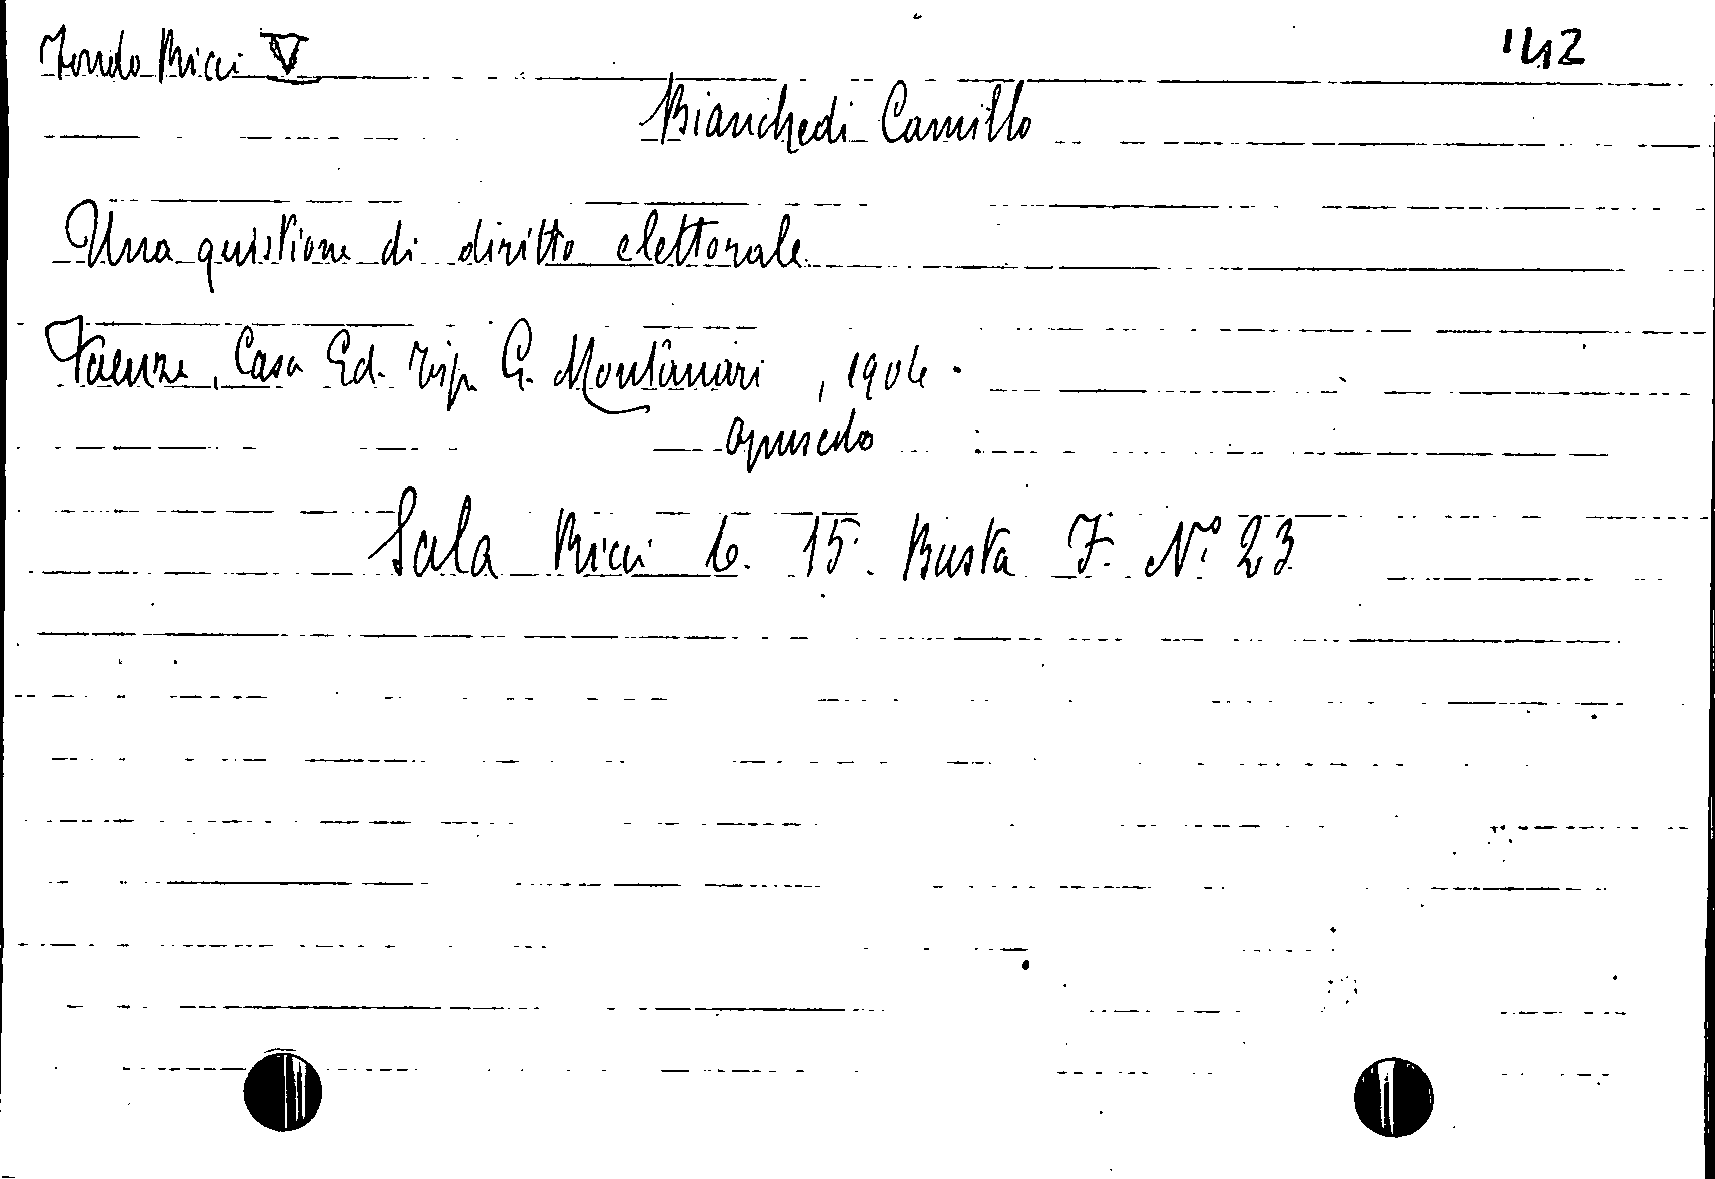 Fondo Ricci V 142
Bianchedi Camillo
Una quistione di diritto elettorale
Faenza, Casa Ed. Tip. G. Montanari, 1904.
opuscolo
Sala Ricci C. 15. Busta F. N.º 23